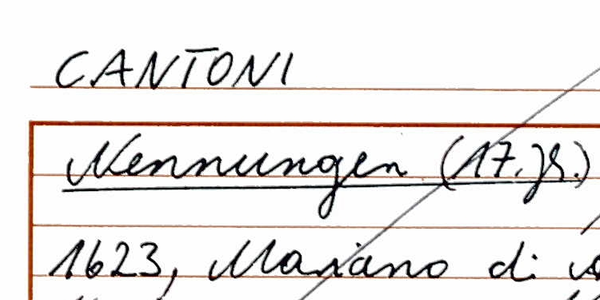 CANTONI
Nennungen (17. Jh.)
1623, Mariano di